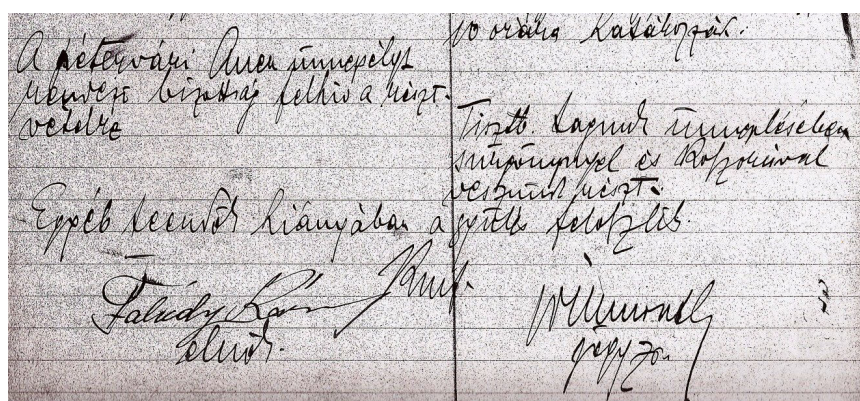 A pétervári Auer ünnepélyt
rendező bizottság felhív a részt-
vételre
10 órára határozzák.
Tiszt. tagunk ünneplésében
sürgönnyel és koszorúval
veszünk részt.
Egyéb teendők hiányában a gyűlés feloszlik.
Kmf.
Faludy
elnök.
jegyző.